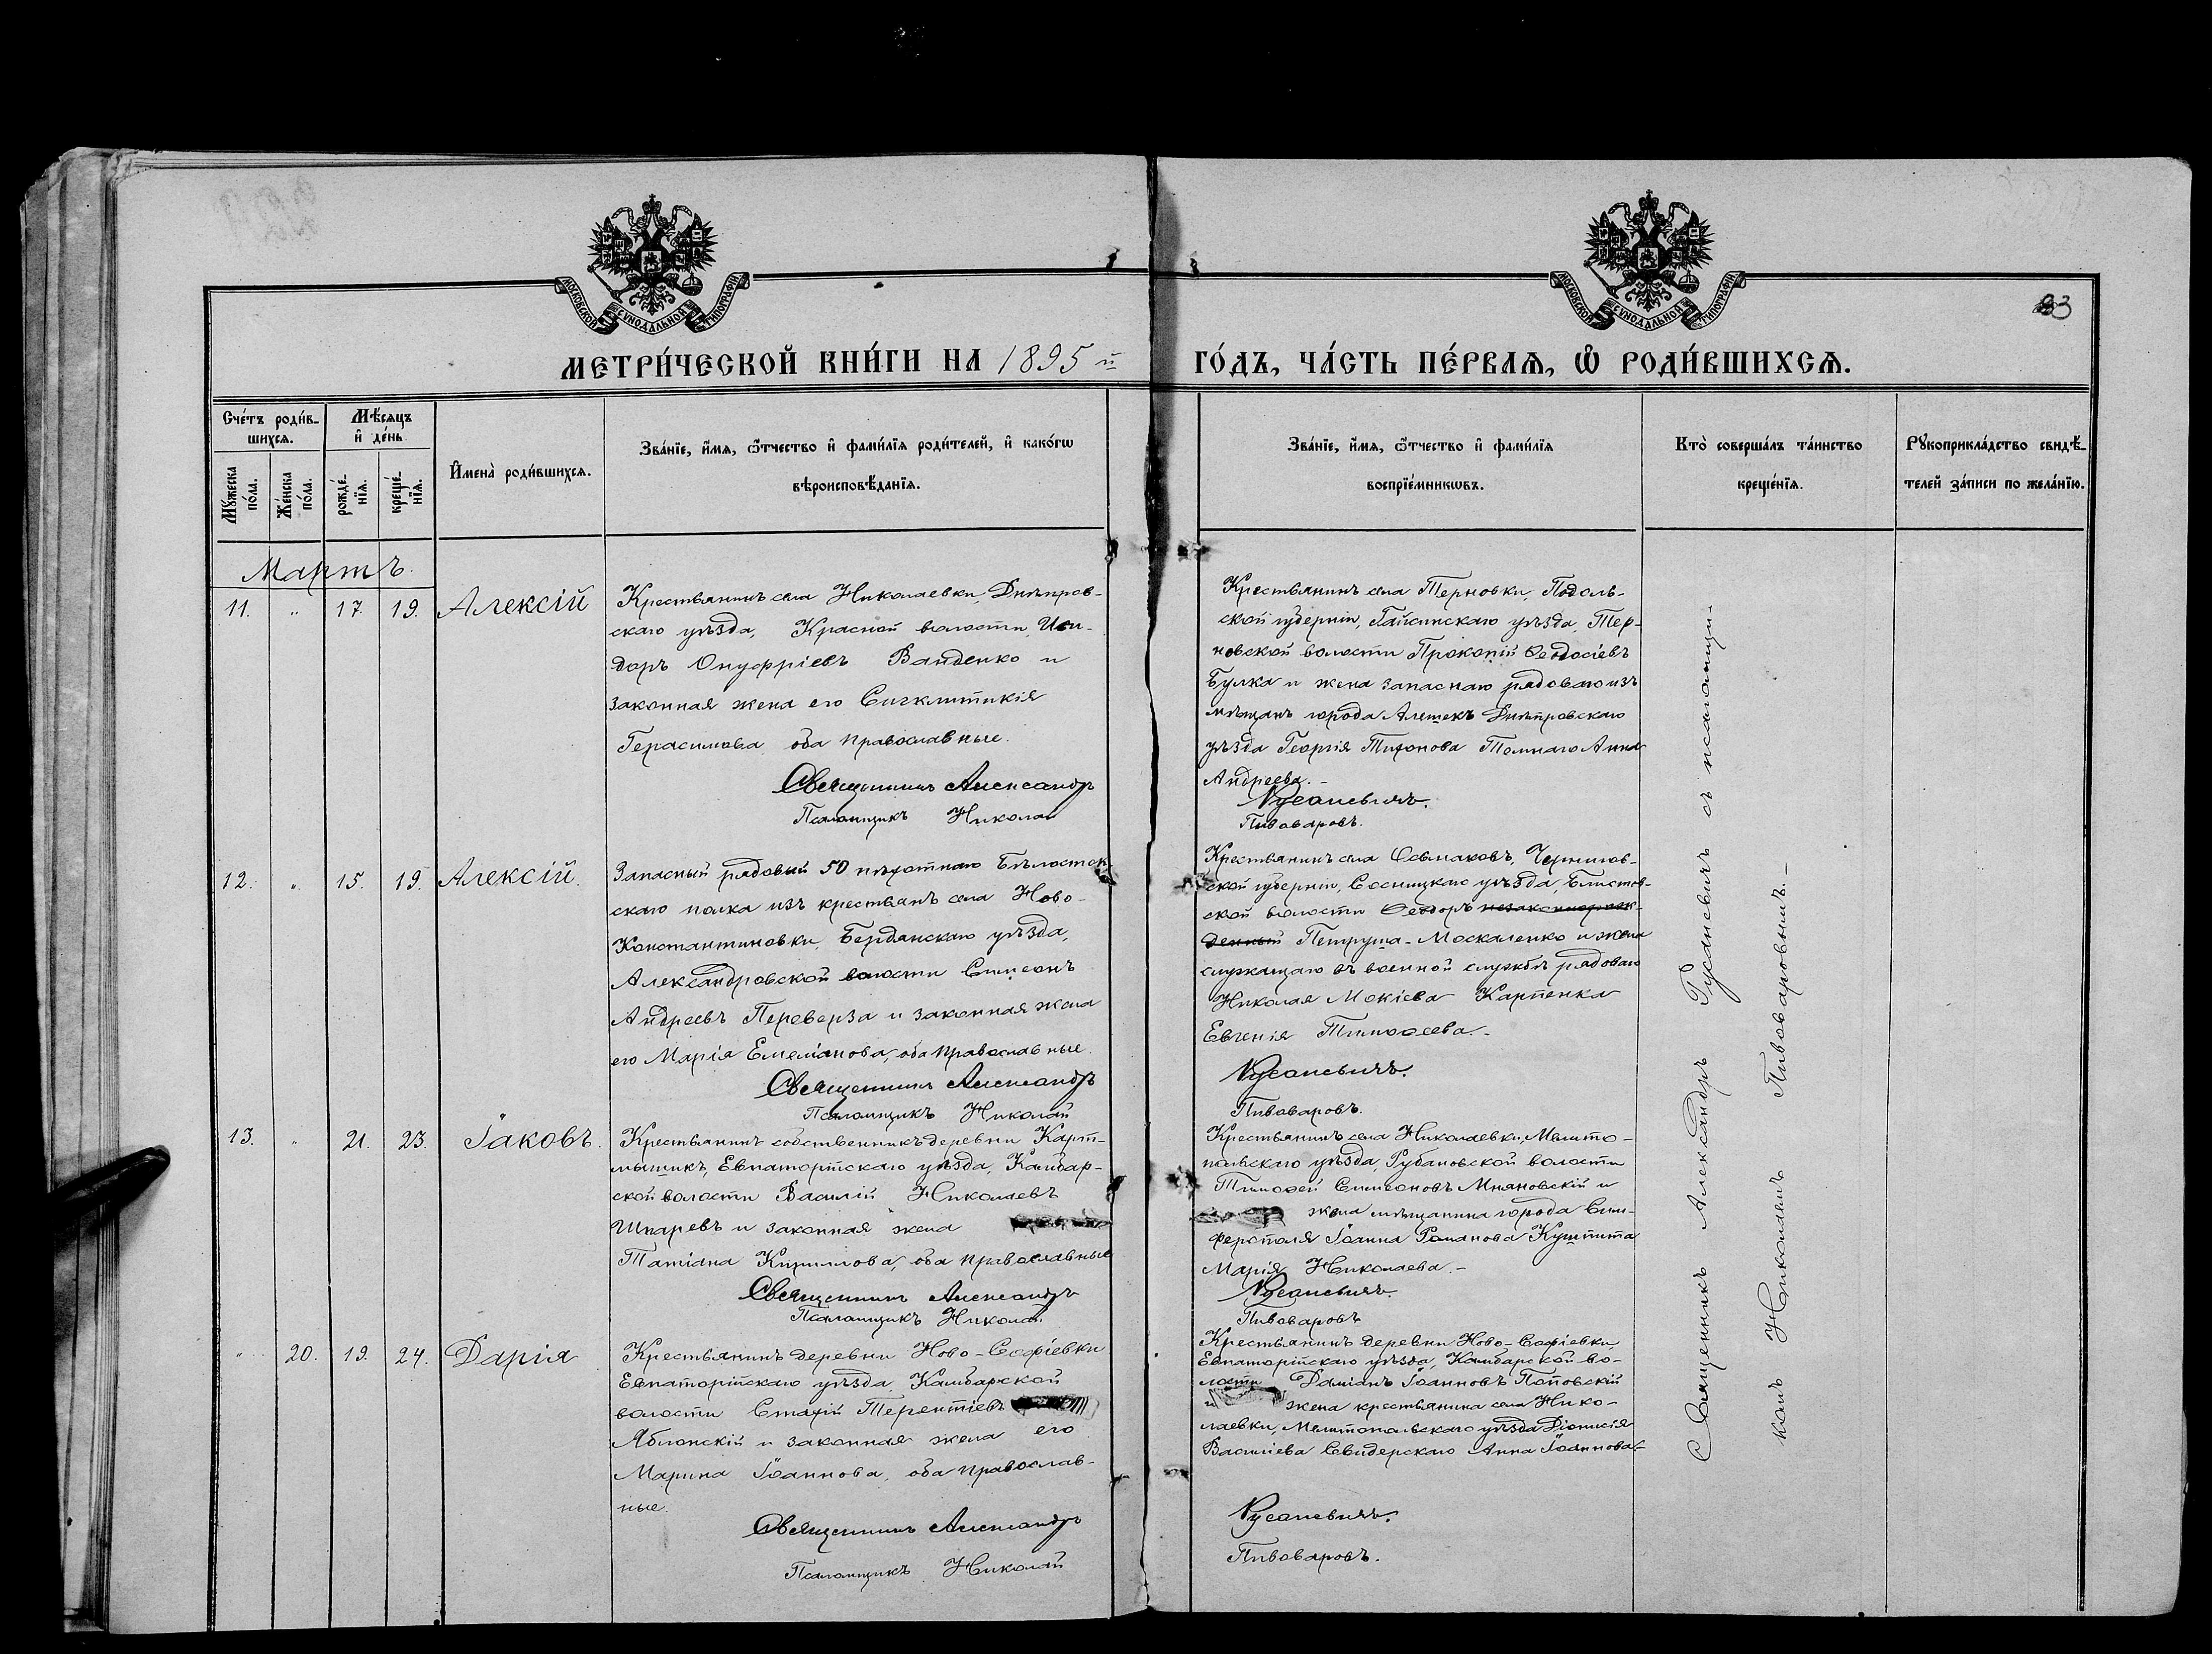 23
МОСКОВСКОЙ СУНОДАЛЬНОЙ ТИПОГРАФІИ.
МОСКОВСКОЙ СУНОДАЛЬНОЙ ТИПОГРАФІИ.
МЕТРИ́ЧЕСКОЙ КНИ́ГИ НА 1895 й ГО́ДЪ, ЧА́СТЬ ПЕ́РВАѦ, Ѽ РОДИ́ВШИХСѦ.
Сче́тъ роди́в-
шихсѧ.
Мꙋ́жеска
по́ла.
Же́нска
по́ла.
Мѣ́сѧцъ
и҆ де́нь
рожде́-
нїѧ.
креще́-
нїѧ.
И҆мена̀ роди́вшихсѧ.
Зва́нїе, и҆́мѧ, ѻ҆́тчество и҆ фами́лїѧ роди́телей, и҆ како́гѡ
вѣроисповѣ́данїѧ.
Зва́нїе, и҆́мѧ, ѻ҆́тчество и҆ фами́лїѧ
воспрїе́мникѡвъ.
Кто̀ соверша́лъ та́инство
креще́нїѧ.
Рꙋкоприкла́дство свидѣ́-
телей за́писи по жела́нїю.
Мартъ.
11. " 17. 19. Алексій
Крестьянинъ села Николаевки, Днѣпров-
скаго уѣзда, Красной волости, Иси-
доръ Онуфріевъ Ванденко и
законная жена его Сигклитикія
Герасимова, оба православные.
Священникъ Александръ
Псаломщикъ Николай
Крестьянинъ села Терновки, Подоль-
ской губерніи, Гайсинскаго уѣзда, Тер-
новской волости Прокопій Ѳеодосіевъ
Булка и жена запаснаго рядоваго изъ
мѣщанъ города Алешекъ Днѣпровскаго
уѣзда Георгія Тихонова Темнаго Анна
Андреева.-
Русаневичъ.
Пивоваровъ.
12. " 15. 19. Алексій.
Запасный рядовый 50 пѣхотнаго Бѣлосток-
скаго полка изъ крестьянъ села Ново-
Константиновки, Бердянскаго уѣзда,
Александровской волости Симеонъ
Андреевъ Переверза и законная жена
его Марія Емеліанова, оба православные.
Священникъ Александръ
Псаломщикъ Николай
Крестьянинъ села Осьмаковъ, Чернигов-
ской губерніи, Сосницкаго уѣзда, Блистов-
ской волости Ѳеодоръ незаконнорож-
денный Петруша-Москаленко и жена
служащаго въ военной службѣ рядоваго
Николая Мокіева Карпенка
Евгенія Тимоѳеева.-
Русаневичъ.
Пивоваровъ.
13. " 21. 23. Іаковъ.
Крестьянинъ собственникъ деревни Карп-
Евпаторійскаго уѣзда, Камбар-
ской волости Василій Николаевъ
Шкаревъ и законная жена
Татіана Кириллова, оба православные
Священникъ Александръ
Псаломщикъ Николай
Крестьянинъ села Николаевки, Мелито-
польскаго уѣзда, Рубановской волости
Тимоѳей Симеоновъ Мняновскій и
жена мѣщанина города Сим-
ферополя Іоанна Романова Кушпита
Марія Николаева.-
Русаневичъ.
Пивоваровъ
" 20. 19. 24. Дарія
Крестьянинъ деревни Ново-Софіевки
Евпаторійскаго уѣзда, Камбарской
волости Стахій Терентіевъ
Яблонскій и законная жена его
Марина Іоаннова, оба православ-
ные.
Священникъ Александръ
Псаломщикъ Николай
Крестьянинъ деревни Ново-Софіевки,
Евпаторійскаго уѣзда, Камбарской во-
лости Даміанъ Іоанновъ Поповскій
и жена крестьянина села Нико-
лаевки, Мелитопольскаго уѣзда Діонисія
Василіева Свидерскаго Анна Іоаннова.-
Русаневичъ.
Пивоваровъ.
Священникъ Александръ Русаневичъ съ псаломщи-
комъ Николаемъ Пивоваровымъ.-